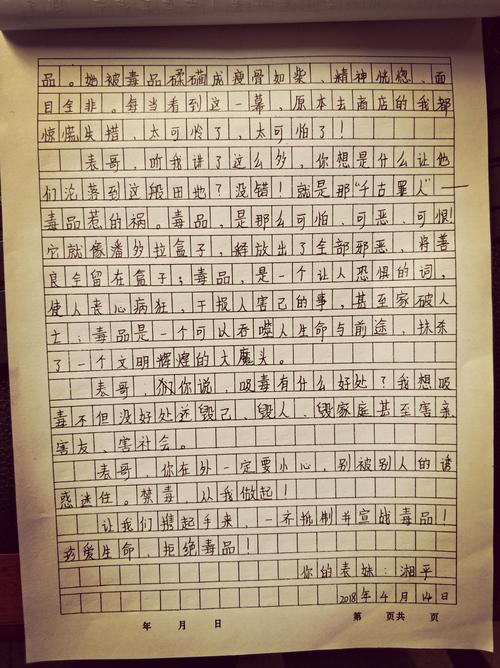 品。她被毒品磋磨成瘦骨如柴、精神恍惚、面
目全非。每当看到这一幕,原本去商店的我都
惊慌失措,太可怜了,太可怕了!
表哥,听我讲了这么多,你想是什么让他
们沦落到这般田地?没错!就是那“千古罪人”——
毒品惹的祸。毒品,是那么可怕,可恶,可恨!
它就像潘多拉盒子,释放出了全部邪恶,将善
良全留在盒子;毒品,是一个让人恐惧的词,
使人丧心病狂,干损人害己的事,甚至家破人
亡;毒品是一个可以吞噬人生命与前途,抹杀
了一个文明辉煌的大魔头。
表哥,你说,吸毒有什么好处?我想吸
毒不但没好处还毁己、毁人、毁家庭甚至害亲
害友、害社会。
表哥,你在外一定要小心,别被别人的诱
惑迷住。禁毒,从我做起!
让我们携起手来,一齐抵制并宣战毒品!
珍爱生命,拒绝毒品!
你的表妹:湘平
2018年4月14日
年 月 日 第 页共 页